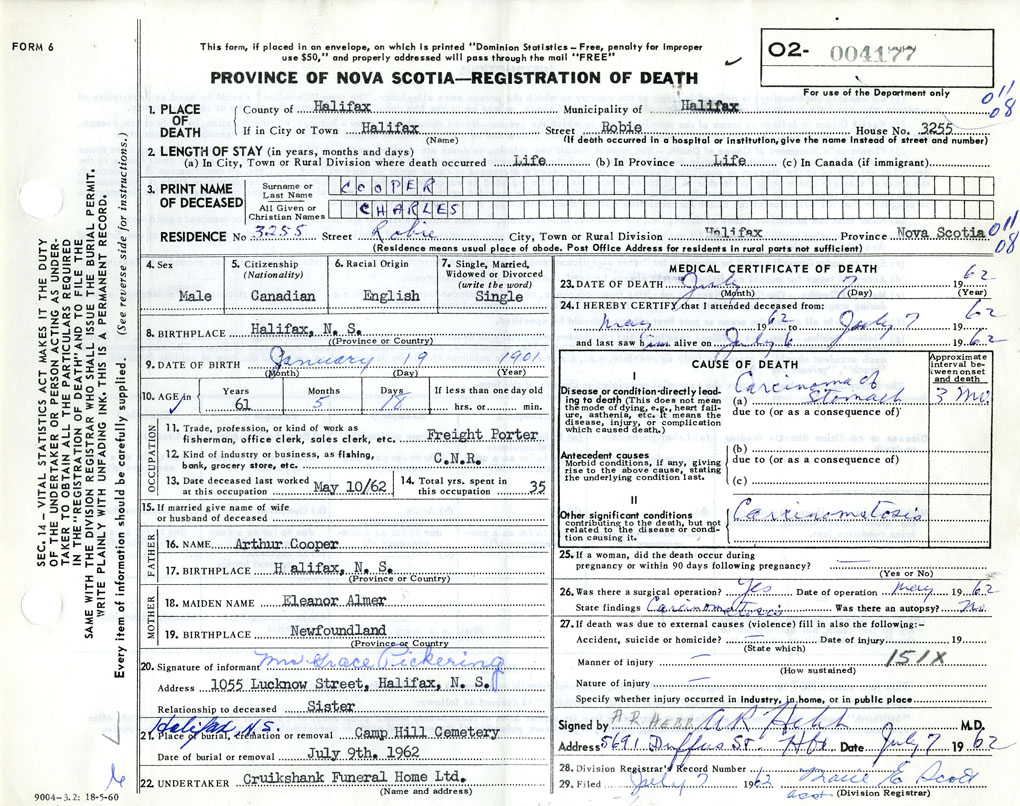 FORM 6
This form, if placed in an envelope, on which is printed "Dominion Statistics – Free, penalty for improper
use $50," and properly addressed will pass through the mail "FREE"
O2- 004177
PROVINCE OF NOVA SCOTIA—REGISTRATION OF DEATH
For use of the Department only
011
08
SEC. 14 – VITAL STATISTICS ACT MAKES IT THE DUTY
OF THE UNDERTAKER OR PERSON ACTING AS UNDER-
TAKER TO OBTAIN ALL THE PARTICULARS REQUIRED
IN THE "REGISTRATION OF DEATH" AND TO FILE THE
SAME WITH THE DIVISION REGISTRAR WHO SHALL ISSUE THE BURIAL PERMIT.
WRITE PLAINLY WITH UNFADING INK. THIS IS A PERMANENT RECORD.
Every item of information should be carefully supplied. (See reverse side for instructions.)
1. PLACE OF DEATH
County of Halifax Municipality of Halifax
If in City or Town Halifax Street Robie House No. 3255
(Name) (If death occurred in a hospital or institution, give the name instead of street and number)
2. LENGTH OF STAY (in years, months and days)
(a) In City, Town or Rural Division where death occurred Life (b) In Province Life (c) In Canada (if immigrant)
3. PRINT NAME OF DECEASED
Surname or Last Name COOPER
All Given or Christian Names CHARLES
RESIDENCE No 3255 Street Robie City, Town or Rural Division Halifax Province Nova Scotia
011
08
(Residence means usual place of abode. Post Office Address for residents in rural parts not sufficient)
4. Sex Male
5. Citizenship (Nationality) Canadian
6. Racial Origin English
7. Single, Married, Widowed or Divorced (write the word) Single
8. BIRTHPLACE Halifax, N. S.
(Province or Country)
9. DATE OF BIRTH January 19 1901
(Month) (Day) (Year)
10. AGE in Years 61 Months 5 Days 18 If less than one day old hrs. or min.
OCCUPATION
11. Trade, profession, or kind of work as
fisherman, office clerk, sales clerk, etc. Freight Porter
12. Kind of industry or business, as fishing,
bank, grocery store, etc. C.N.R.
13. Date deceased last worked at this occupation May 10/62
14. Total yrs. spent in this occupation 35
15. If married give name of wife
or husband of deceased
FATHER
16. NAME Arthur Cooper
17. BIRTHPLACE H alifax, N. S.
(Province or Country)
MOTHER
18. MAIDEN NAME Eleanor Almer
19. BIRTHPLACE Newfoundland
(Province or Country
20. Signature of informant Mrs Grace Pickering
Address 1055 Lucknow Street, Halifax, N. S.
Relationship to deceased Sister
Halifax, N.S.
21. Place of burial, cremation or removal Camp Hill Cemetery
Date of burial or removal July 9th. 1962
22. UNDERTAKER Cruikshank Funeral Home Ltd.
(Name and address)
9004-3.2: 18-5-60
MEDICAL CERTIFICATE OF DEATH
23. DATE OF DEATH July 7 1962
(Month) (Day) (Year)
24. I HEREBY CERTIFY that I attended deceased from:
May 1962 to July 7 1962
and last saw him alive on July 6 1962
CAUSE OF DEATH
Approximate interval between onset and death
I
Disease or condition directly leading to death (This does not mean
the mode of dying, e.g., heart failure, asthenia, etc. It means the
disease, injury, or complication
which caused death.)
(a) Carcinoma of Stomach 3 Mo.
due to (or as a consequence of)
Antecedent causes
Morbid conditions, if any, giving
rise to the above cause, stating
the underlying condition last.
(b)
due to (or as a consequence of)
(c)
II
Other significant conditions
contributing to the death, but not
related to the disease or condition causing it.
Carcinomatosis
25. If a woman, did the death occur during
pregnancy or within 90 days following pregnancy? —
(Yes or No)
26. Was there a surgical operation? Yes Date of operation May 1962
State findings Carcinomatosis Was there an autopsy? No.
27. If death was due to external causes (violence) fill in also the following:-
Accident, suicide or homicide? — Date of injury 19
(State which)
Manner of injury — 151X
(How sustained)
Nature of injury —
Specify whether injury occurred in industry, in home, or in public place
Signed by A R HEBB A R Hebb M.D.
Address 5691 Duffus St. Hfx Date July 7 1962
28. Division Registrar's Record Number
29. Filed July 7 1962 Marie E Scott
asst (Division Registrar)